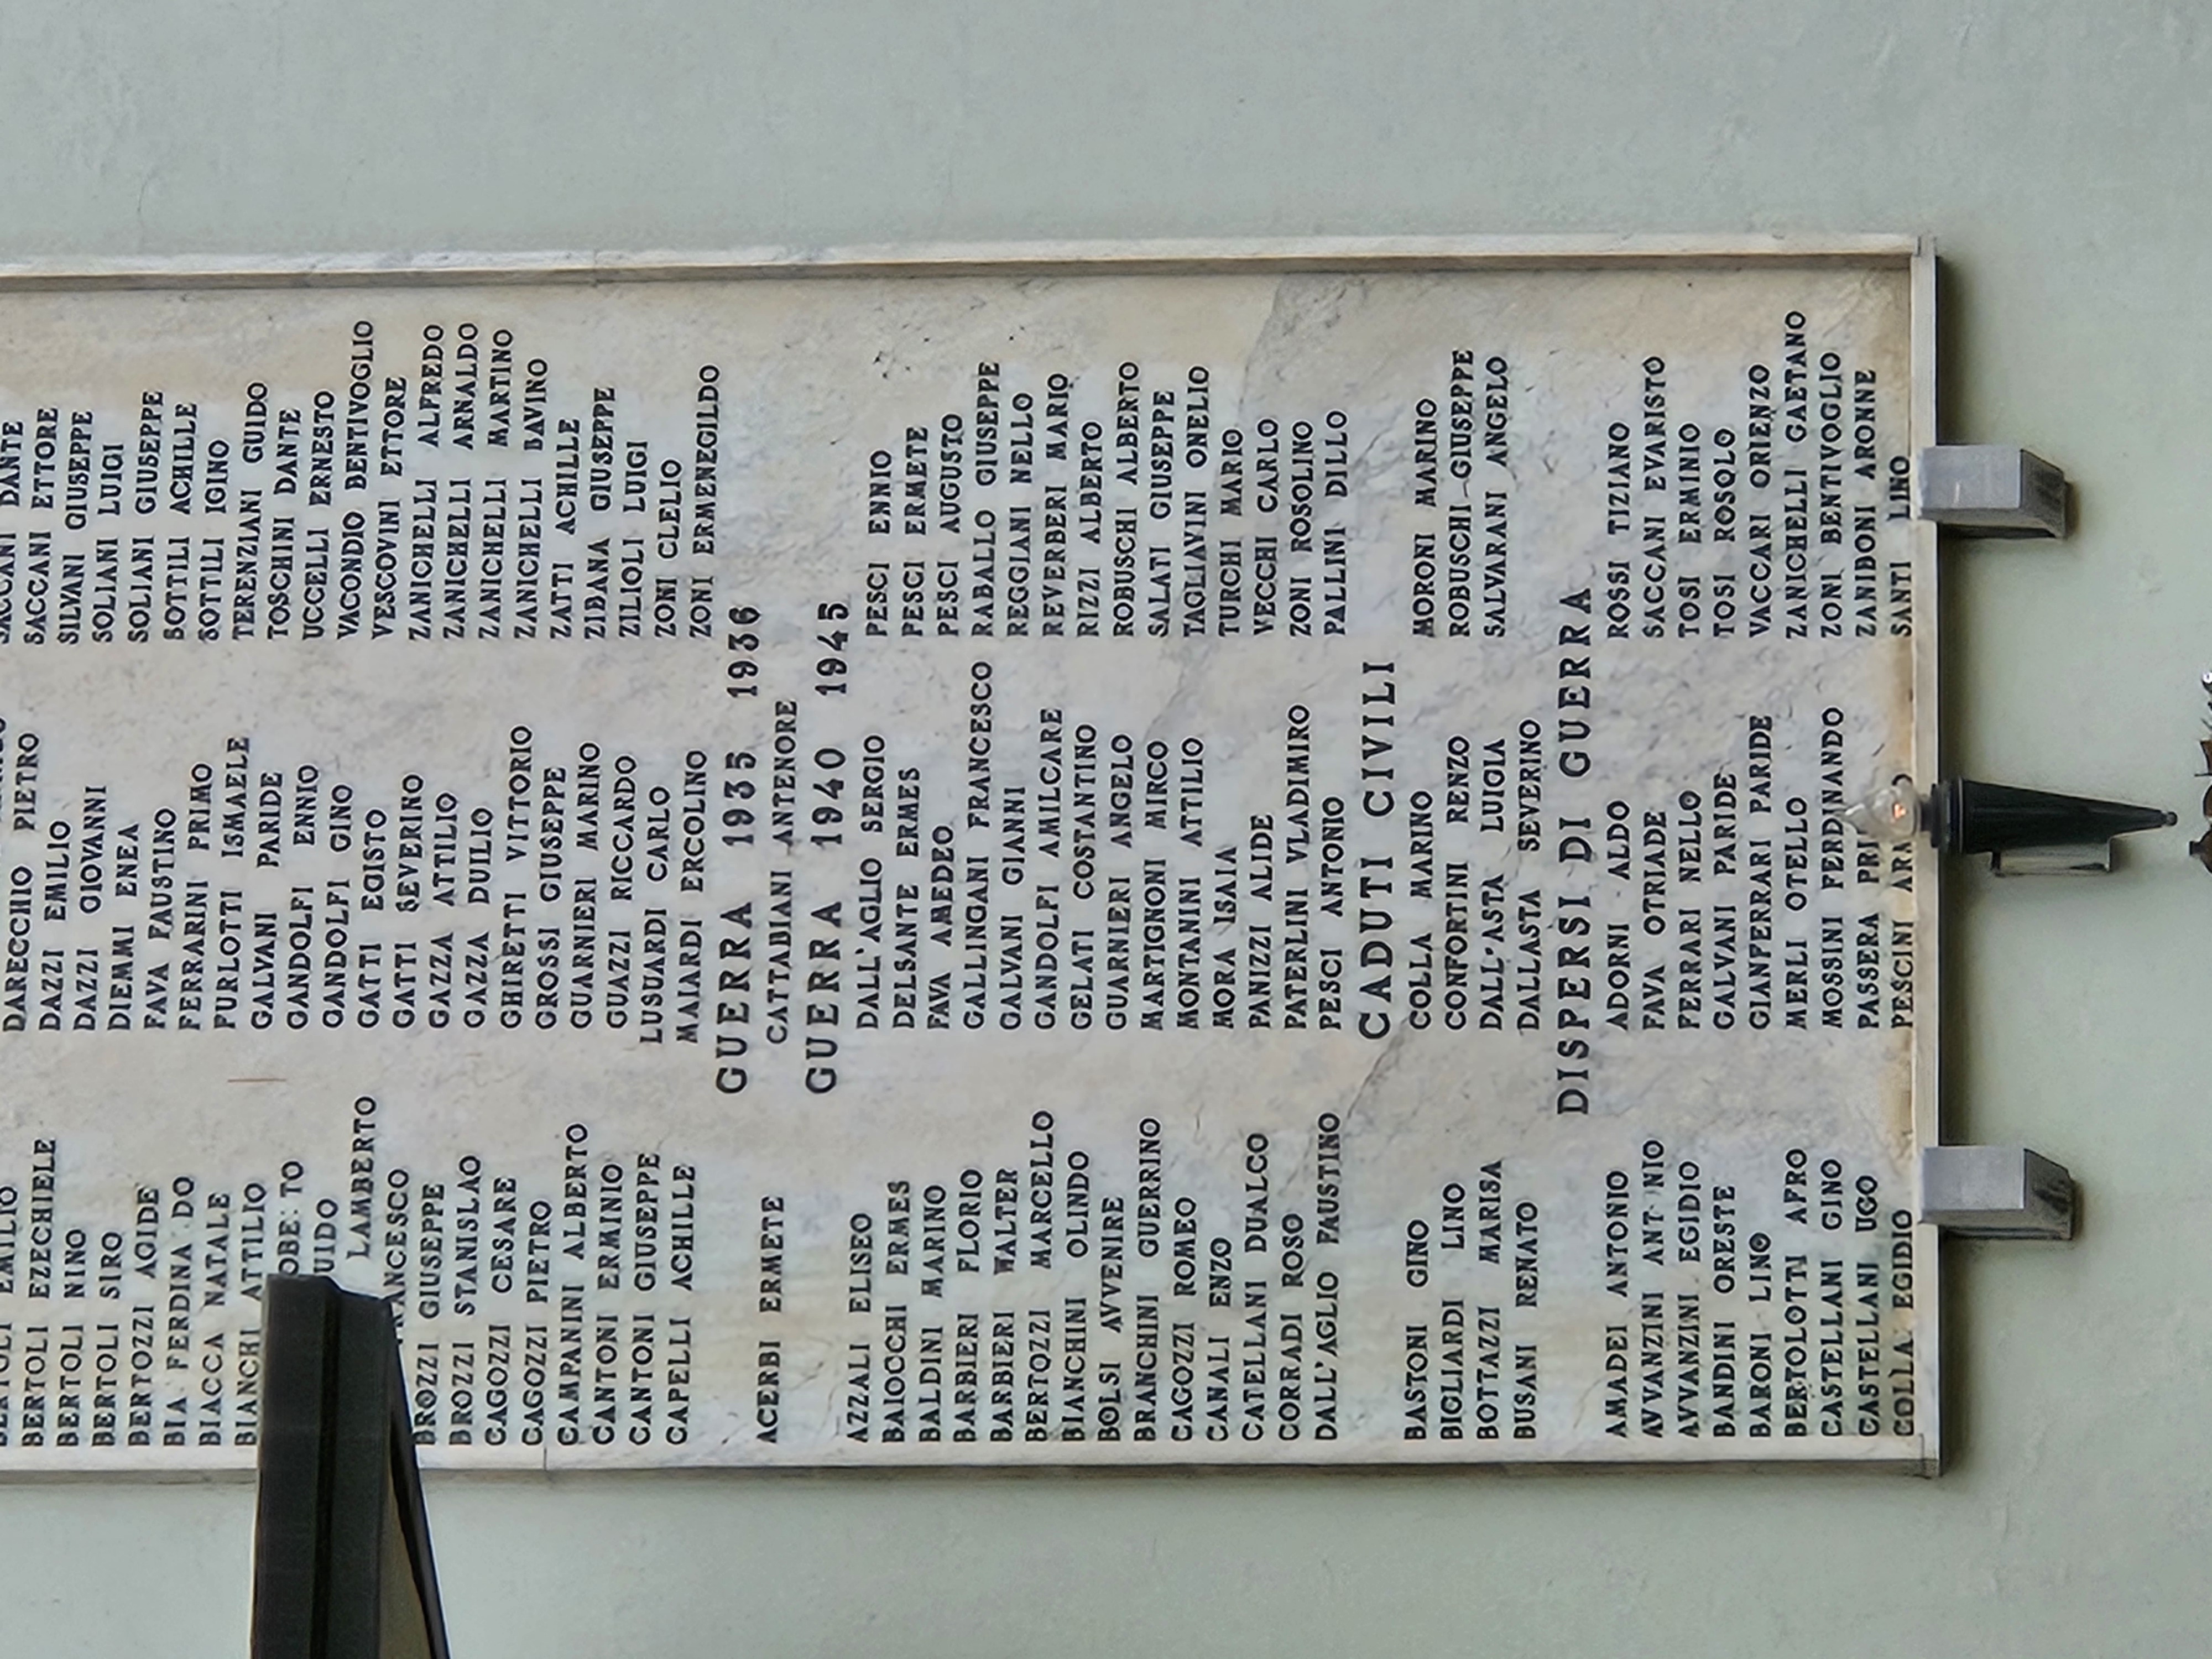 BERTOLI EMILIO
BERTOLI EZECHIELE
BERTOLI NINO
BERTOLI SIRO
BERTOZZI AGIDE
BIA FERDINA DO
BIACCA NATALE
BIANCHI ATTILIO
LAMBERTO
BROZZI GIUSEPPE
BROZZI STANISLAO
CAGOZZI CESARE
CAGOZZI PIETRO
CAMPANINI ALBERTO
CANTONI ERMINIO
CANTONI GIUSEPPE
CAPELLI ACHILLE
DARECCHIO PIETRO
DAZZI EMILIO
DAZZI GIOVANNI
DIEMMI ENEA
FAVA FAUSTINO
FERRARINI PRIMO
FURLOTTI ISMAELE
GALVANI PARIDE
GANDOLFI ENNIO
GANDOLFI GINO
GATTI EGISTO
GATTI SEVERINO
GAZZA ATTILIO
GAZZA DUILIO
GHIRETTI VITTORIO
GROSSI GIUSEPPE
GUARNIERI MARINO
GUAZZI RICCARDO
LUSUARDI CARLO
MAIARDI ERCOLINO
SACCANI DANTE
SACCANI ETTORE
SILVANI GIUSEPPE
SOLIANI LUIGI
SOLIANI GIUSEPPE
SOTTILI ACHILLE
SOTTILI IGINO
TERENZIANI GUIDO
TOSCHINI DANTE
UCCELLI ERNESTO
VACONDIO BENTIVOGLIO
VESCOVINI ETTORE
ZANICHELLI ALFREDO
ZANICHELLI ARNALDO
ZANICHELLI MARTINO
ZANICHELLI SAVINO
ZATTI ACHILLE
ZIBANA GIUSEPPE
ZILIOLI LUIGI
ZONI CLELIO
ZONI ERMENEGILDO
GUERRA 1935 1936
ACERBI ERMETE
CATTABIANI ANTENORE
GUERRA 1940 1945
AZZALI ELISEO
BAIOCCHI ERMES
BALDINI MARINO
BARBIERI FLORIO
BARBIERI WALTER
BERTOZZI MARCELLO
BIANCHINI OLINDO
BOLSI AVVENIRE
BRANCHINI GUERRINO
CAGOZZI ROMEO
CANALI ENZO
CATELLANI DUALCO
CORRADI ROSO
DALL'AGLIO FAUSTINO
DALL'AGLIO SERGIO
DELSANTE ERMES
FAVA AMEDEO
GALLINGANI FRANCESCO
GALVANI GIANNI
GANDOLFI AMILCARE
GELATI COSTANTINO
GUARNIERI ANGELO
MARTIGNONI MIRCO
MONTANINI ATTILIO
MORA ISAIA
PANIZZI ALIDE
PATERLINI VLADIMIRO
PESCI ANTONIO
PESCI ENNIO
PESCI ERMETE
PESCI AUGUSTO
RABALLO GIUSEPPE
REGGIANI NELLO
REVERBERI MARIO
RIZZI ALBERTO
ROBUSCHI ALBERTO
SALATI GIUSEPPE
TAGLIAVINI ONELIO
TURCHI MARIO
VECCHI CARLO
ZONI ROSOLINO
PALLINI DILLO
CADUTI CIVILI
BASTONI GINO
BIGLIARDI LINO
BOTTAZZI MARISA
BUSANI RENATO
COLLA MARINO
CONFORTINI RENZO
DALL'ASTA LUIGIA
DALLASTA SEVERINO
MORONI MARINO
ROBUSCHI GIUSEPPE
SALVARANI ANGELO
DISPERSI DI GUERRA
AMADEI ANTONIO
AVVANZINI ANT NIO
AVVANZINI EGIDIO
BANDINI ORESTE
BARONI LINO
BERTOLOTTI AFRO
CASTELLANI GINO
CASTELLANI UGO
COLLA EGIDIO
ADORNI ALDO
FAVA OTRIADE
FERRARI NELLO
GALVANI PARIDE
GIANFERRARI PARIDE
MERLI OTELLO
MOSSINI FERDINANDO
PASSERA
PESCINI
ROSSI TIZIANO
SACCANI EVARISTO
TOSI ERMINIO
TOSI ROSOLO
VACCARI ORIENZO
ZANICHELLI GAETANO
ZONI BENTIVOGLIO
ZANIBONI ARONNE
SANTI LINO